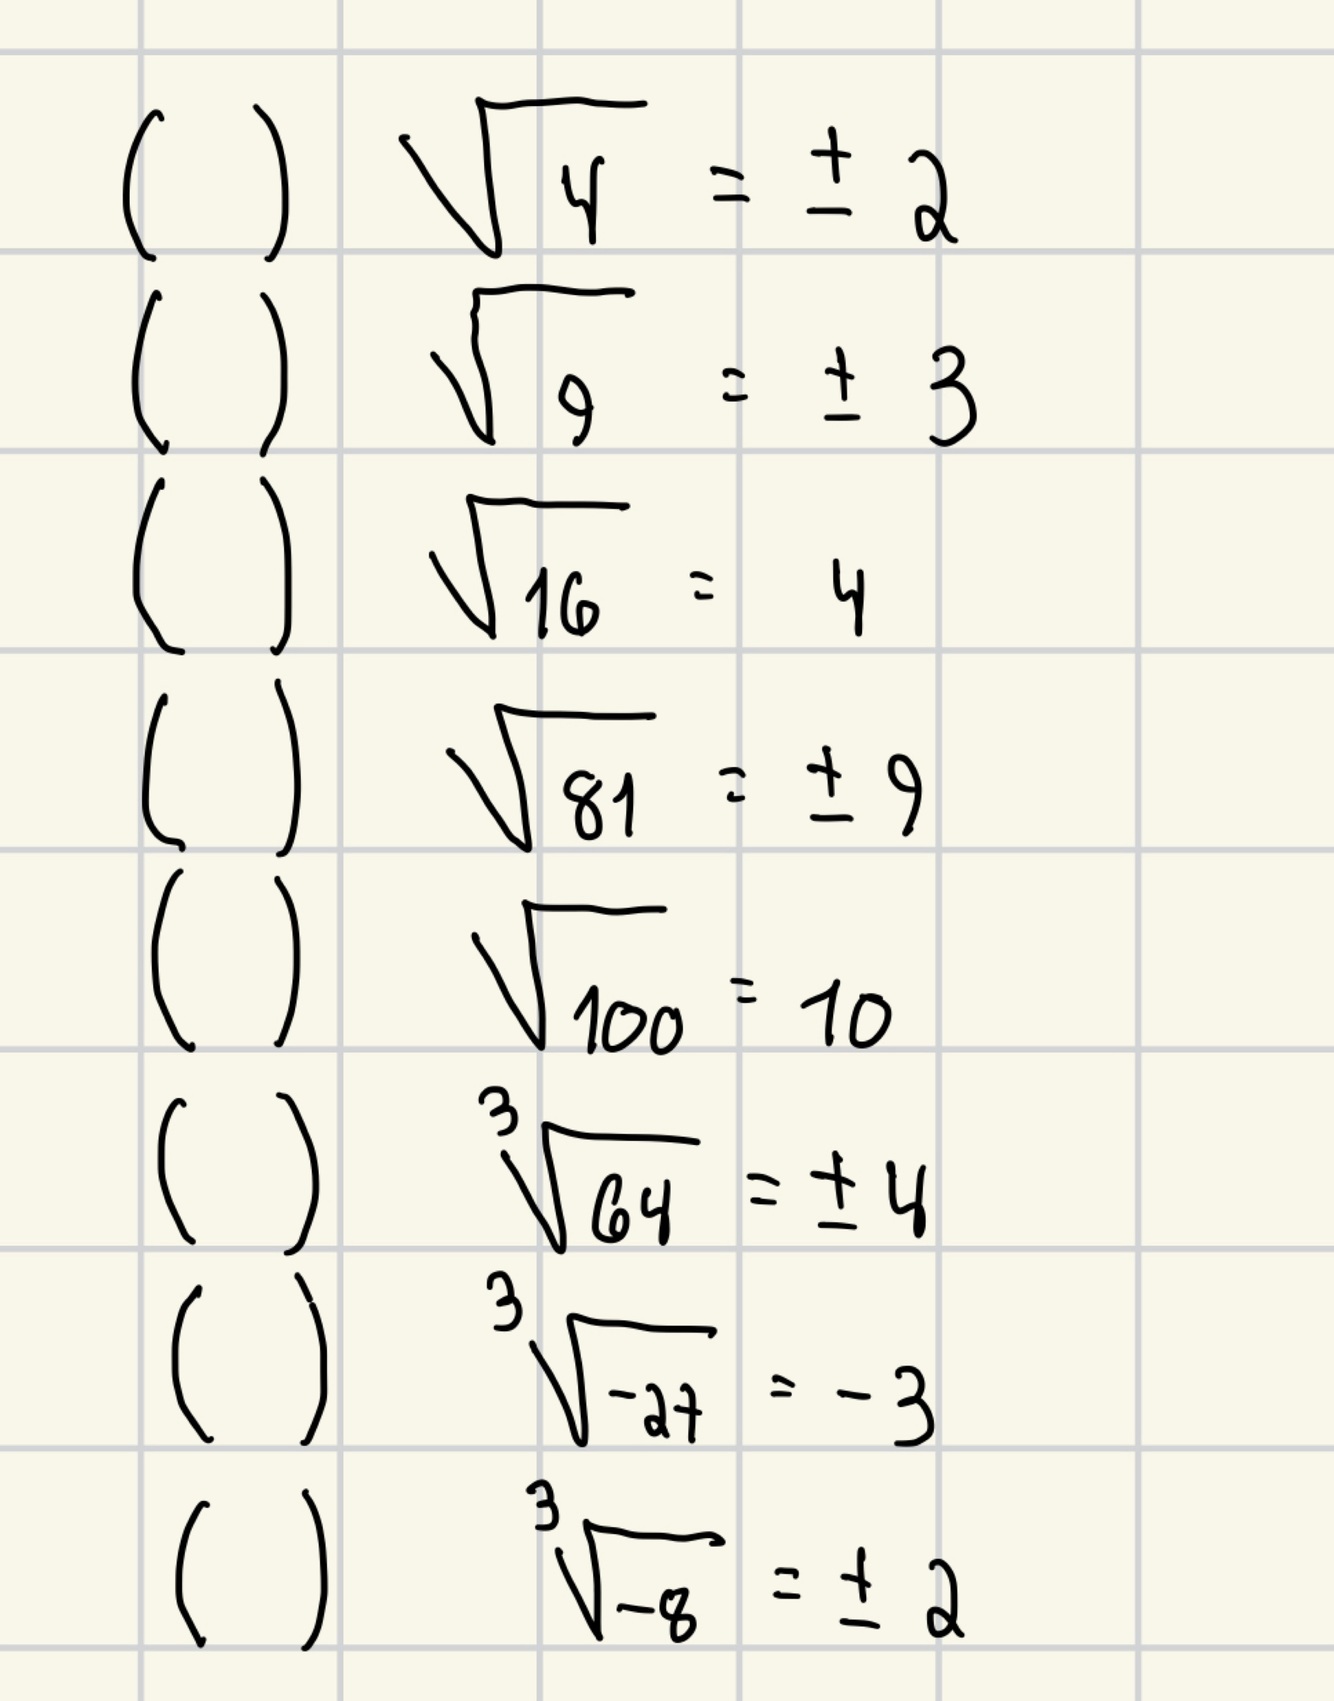 ( ) √4 = ± 2
( ) √9 = ± 3
( ) √16 = 4
( ) √81 = ± 9
( ) √100 = 10
( ) ³√64 = ± 4
( ) ³√-27 = - 3
( ) ³√-8 = ± 2